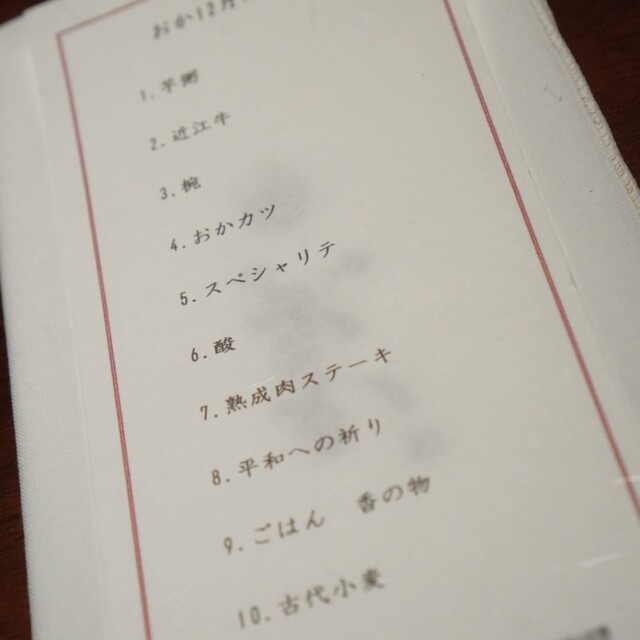 おか12月
1. 芋粥
2. 近江牛
3. 椀
4. おかカツ
5. スペシャリテ
6. 酸
7. 熟成肉ステーキ
8. 平和への祈り
9. ごはん　香の物
10. 古代小麦